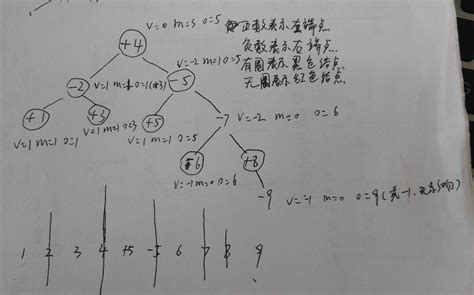 v=0 m=3 o=5
+4
正数表示左端点
负数表示右端点
有圈表示黑色结点
无圈表示红色结点
-2
v=1 m=1 o=1(或3)
-5
v=-2 m=1 o=5
+1
v=1 m=1 o=1
+3
v=1 m=1 o=3
+5
v=1 m=1 o=5
-7
v=-2 m=0 o=6
-6
v=-1 m=0 o=6
+8
-9
v=-1 m=0 o=9
1 2 3 4 +5 -5 6 7 8 9